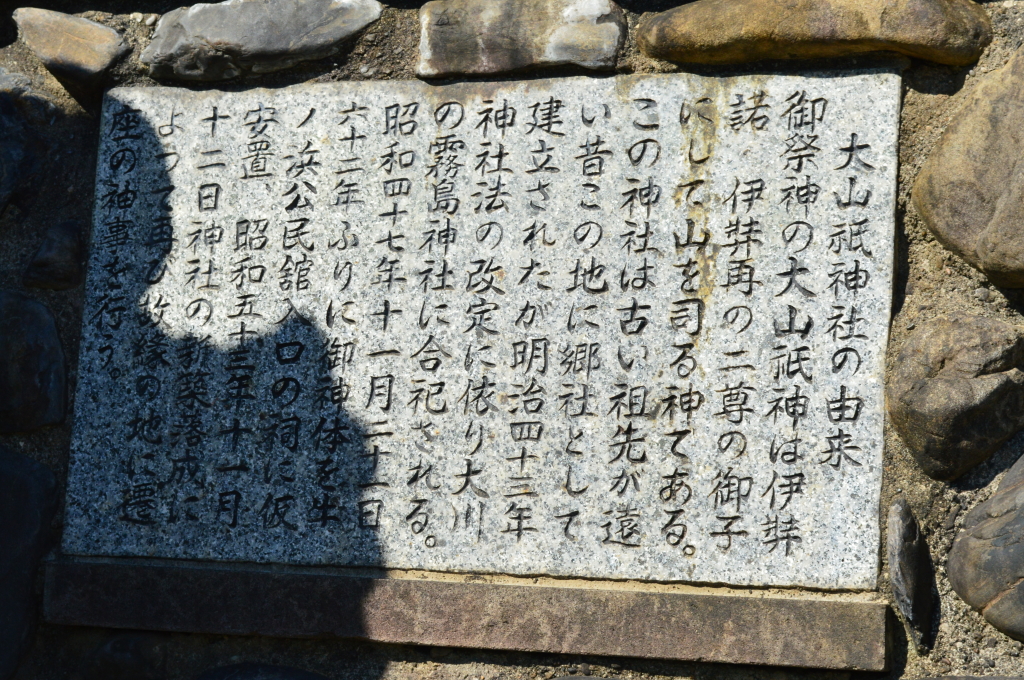 大山祇神社の由来
御祭神の大山祇神は伊弉
諾 伊弉再の二尊の御子
にして山を司る神てある。
この神社は古い祖先が遠
い昔この地に郷社として
建立されたが明治四十三年
神社法の改定に依り大川
の霧島神社に合祀される。
昭和四十七年十一月二十二日
六十二年ふりに御神体を出
ノ浜公民舘入口の祠に仮
安置、昭和五十三年十一月
十二日神社の新築落成に
よって再び故縁の地に遷
座の神事を行う。